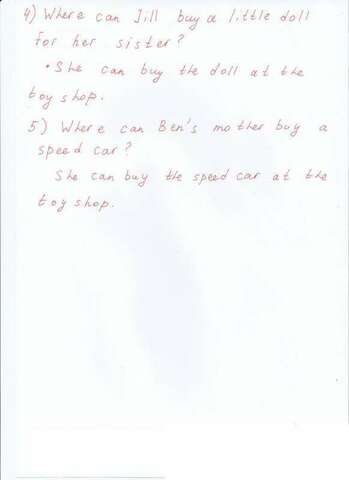 4) Where can Jill buy a little doll
for her sister?
• She can buy the doll at the
toy shop.
5) Where can Ben's mother buy a
speed car?
She can buy the speed car at the
toy shop.